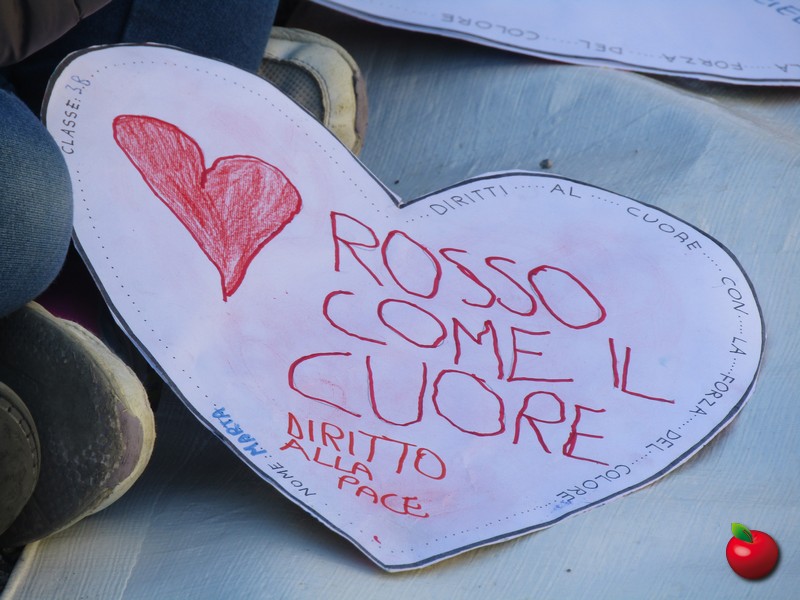 CLASSE: 3.B
DIRITTI AL CUORE CON LA FORZA DEL COLORE
ROSSO
COME IL
CUORE
DIRITTO
ALLA
PACE
NOME: MARTA
LA FORZA DEL COLORE